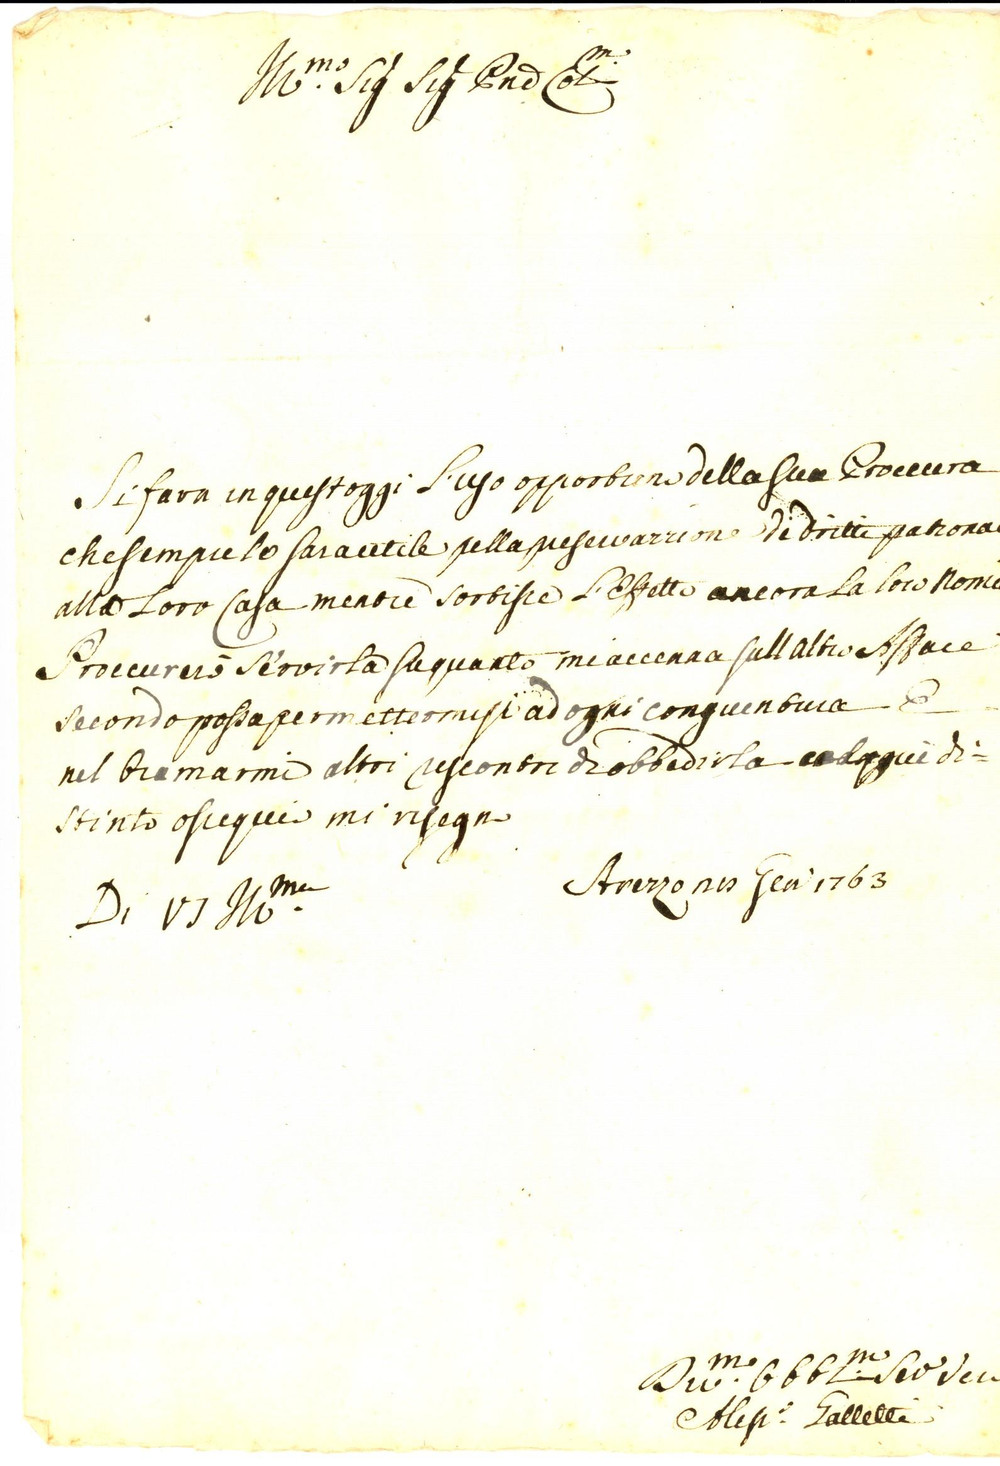 Ill.mo Sig Sig Pne Col.mo
Si farà in quest oggi l'uso opportuno della sua Proccura
che sempre lo sarà utile pella preservazzione de dritti patrona
alla Loro Casa mentre sortisce l'Effetto ancora la loro Nomi
Proccurerò servirla in quanto mi accenna sull altro Affare
secondo possa permettermisi ad ogni congiuentura E
nel bramarmi altri riscontri di obbedirla di-
stinto ossequio mi rasegno
Di VS Ill.ma
Arezzo Gen 1763
Div.mo Obbl.mo Ser
Aless.o Galletti